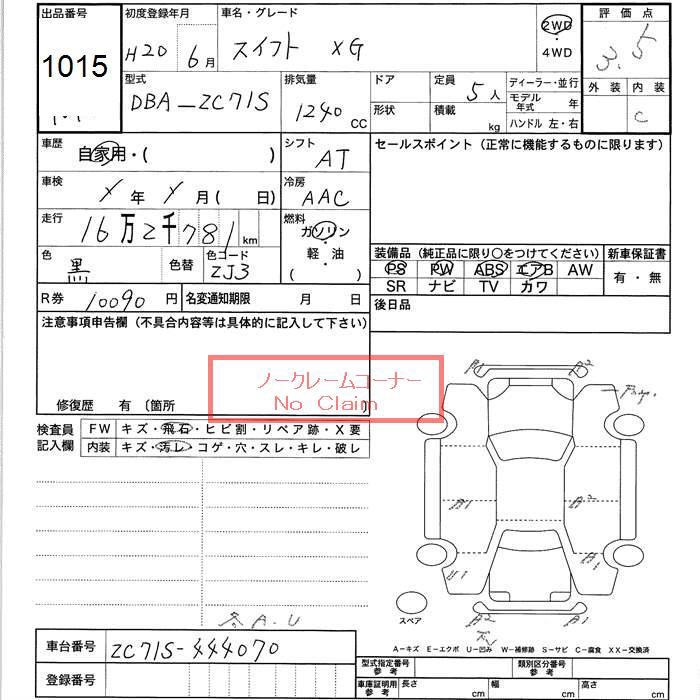 出品番号 初度登録年月 車名・グレード 評価点
1015 H20 6月 スイフト XG 2WD・4WD 3.5
型式 排気量 ドア 定員 ディーラー・並行 外装 内装
DBA-ZC71S 1240 CC 形状 5人 積載 kg モデル年式 年 ハンドル 左・右 C
車歴 自家用・( ) シフト AT セールスポイント (正常に機能するものに限ります)
車検 年 月( 日) 冷房 AAC
走行 16万2千781km 燃料 ガソリン・軽油・( )
色 黒 色替 色コード ZJ3
装備品 (純正品に限り○をつけてください) 新車保証書
PS PW ABS エアB AW 有・無
SR ナビ TV カワ
R券 10090円 名変通知期限 月 日 後日品
注意事項申告欄 (不具合内容等は具体的に記入して下さい)
ノークレームコーナー
No Claim
修復歴 有 〔箇所
検査員記入欄 FW キズ・飛石・ヒビ割・リペア跡・X要
内装 キズ・汚レ・コゲ・穴・スレ・キレ・破レ
A1 A2
U1 U1
スペア A2 A1
A.U
A-キズ E-エクボ U-凹み W-補修跡 S-サビ C-腐食 XX-交換済
車台番号 ZC71S-444070
登録番号
型式指定番号 参考 類別区分番号 参考
車庫証明用 参考 長さ cm 幅 cm 高さ cm